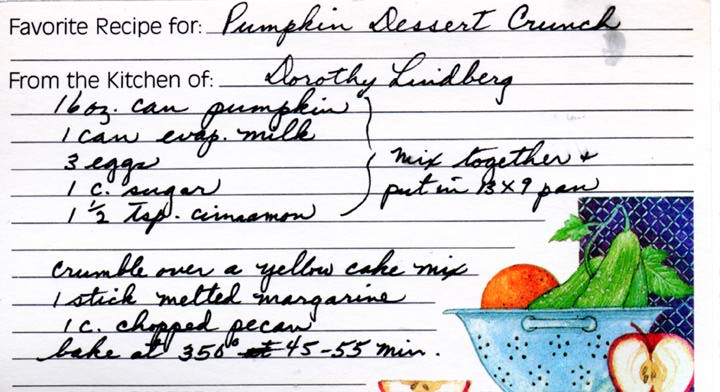 Favorite Recipe for: Pumpkin Dessert Crunch
From the Kitchen of: Dorothy Lindberg
16 oz. can pumpkin
1 can evap. milk
3 eggs
1 c. sugar
1 1/2 tsp. cinnamon
mix together +
put in 13 x 9 pan
crumble over a yellow cake mix
1 stick melted margarine
1 c. chopped pecan
bake at 350° 45-55 min.